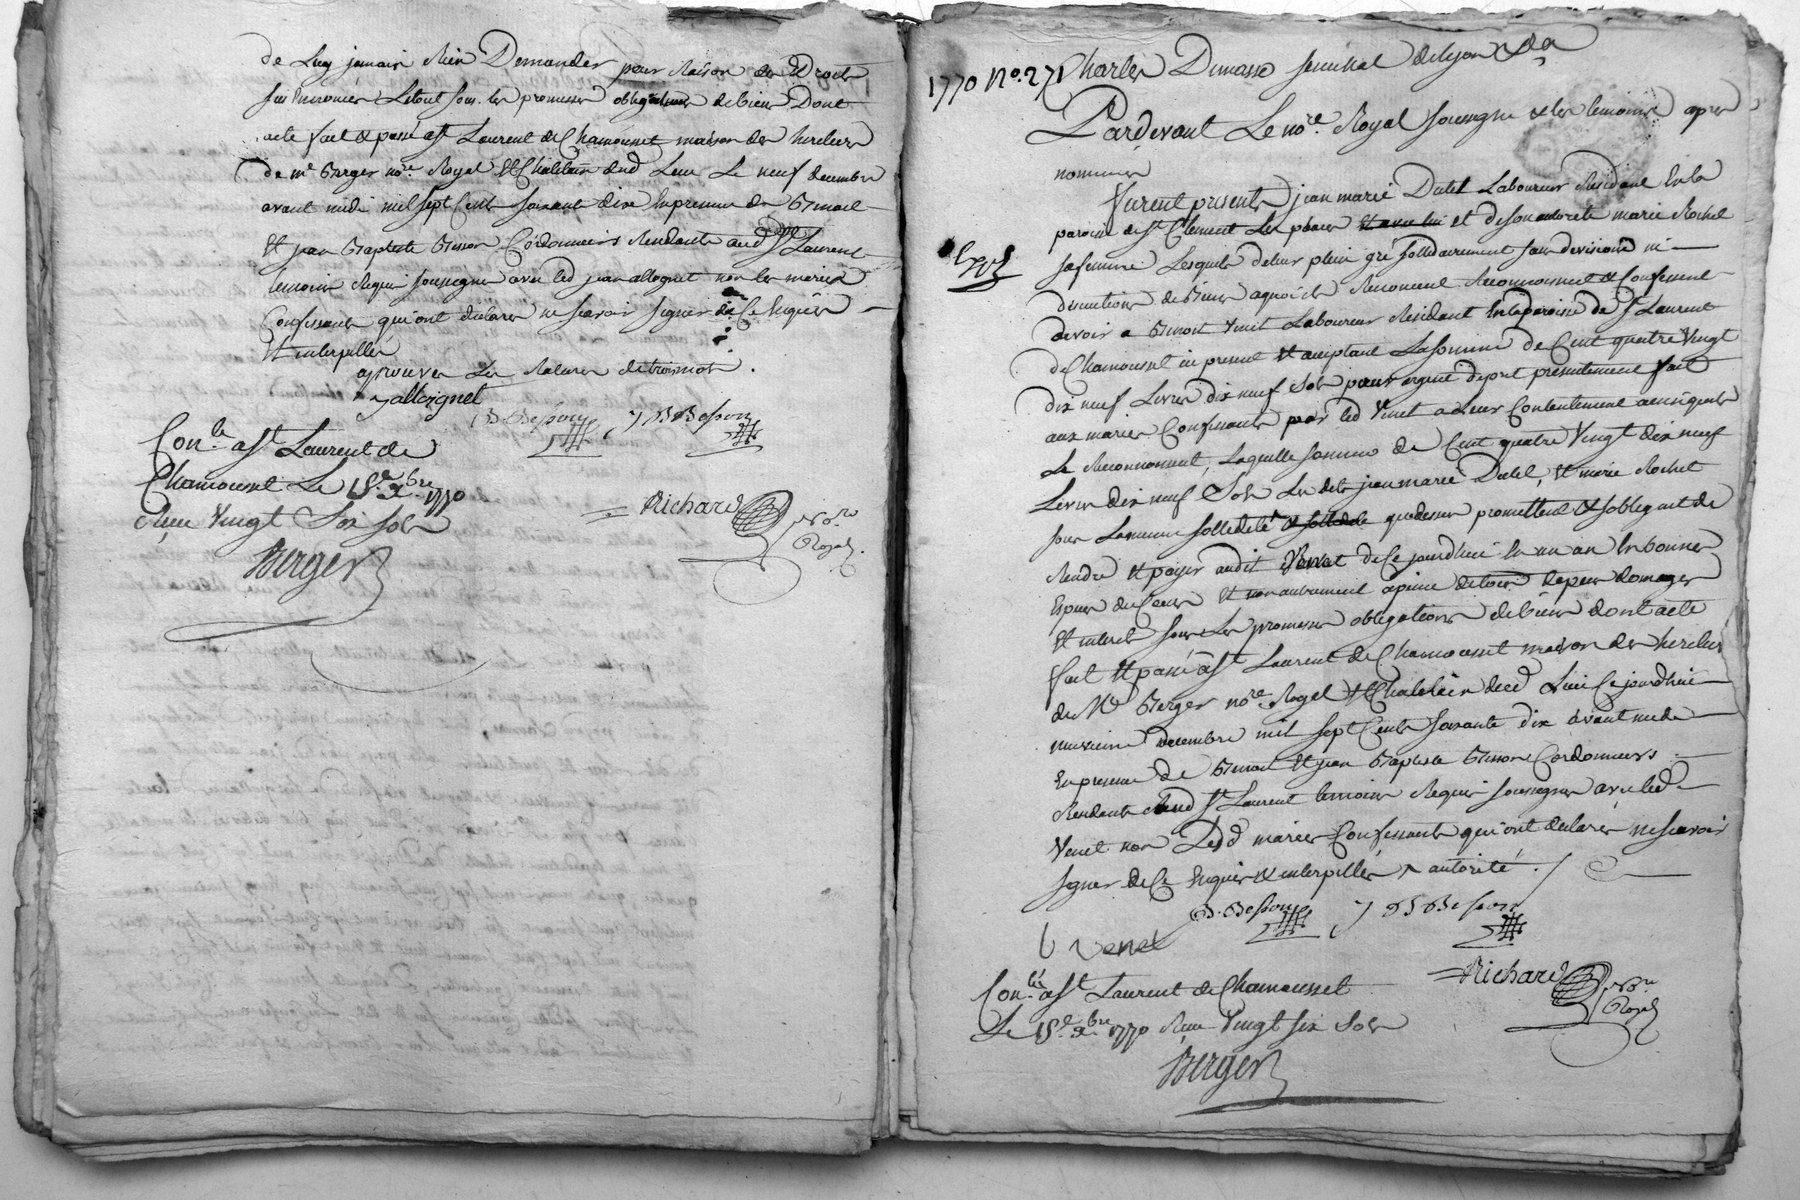 de Luy jamais Rien Demander pour Raison des Droits
acte fait & passé a St Laurent de Chamousset maison des heritiers
de me Berger nore Royal Et Chatelain dud Lieu Le neuf decembre
avant midi mil sept Cents soixante dix En presence de Benoit
Et jean Baptiste Bisson Cordonniers Residants aud St Laurent
temoins Requis soussignes avec led jean alloignet non les mariés
Confessants qui ont declarés ne scavoir signer de Ce Enquis
Et interpellés
aprouvés La Rature de trois mots.
J alloignet
B Besson J B Besson
Con.lé a St Laurent de
Chamousset Le 15e Xbre 1770
Reçu Vingt Six sols
Richard nore
Royal.
Berger
1770 No. 271 Charles Dumasse senechal de Lyon
Pardevant Le nore Royal soussigné & les temoins apres
nommés
furent presents jean marie Dutel Laboureur Residant En la
paroisse de St Clement Les places et avec lui et de son autorité marie Rochet
sa femme Lesquels de leur plein gré sollidairement sans division ni
discution de Biens a quoi ils Renoncent Reconnoissent & Confessent
devoir a Benoit Venet Laboureur Residant En la paroisse de St Laurent
de Chamousset ici present Et acceptant La somme de Cent quatre Vingt
dix neuf Livres dix neuf Sols pour argent de pret presentement fait
aux mariés Confessants par led Venet a Leur Contentement ainsi qu'ils
Le Reconnoissent, Laquelle somme de Cent quatre Vingt dix neuf
Livres dix neuf Sols Les dits jean marie Dutel, Et marie Rochet
sous La meme sollidité & sollidité que dessus promettent & s'obligent de
Rendre Et payer audit Venet de Ce jourdhui En un an En bonnes
Especes de Cours Et non autrement a peine de tous depens domages
Et interets sous Les promesses obligations de biens dont acte
fait Et passé a St Laurent de Chamousset maison des heritiers
de Me Berger nore Royal Et Chatelain dud Lieu Ce jourdhui
neuvieme decembre mil sept Cents soixante dix avant midi
En presence de Benoit Et jean Baptiste Bisson Cordonniers
Residants aud St Laurent temoins Requis soussignes avec led
Venet non Lesd mariés Confessants qui ont declarés ne scavoir
signer de Ce Enquis & interpellés autorité.
B. Besson J B Besson
b Venet
Con.lé a St Laurent de Chamousset
Le 15e Xbre 1770 Reçu Vingt six Sols
Richard nore
Royal
Berger